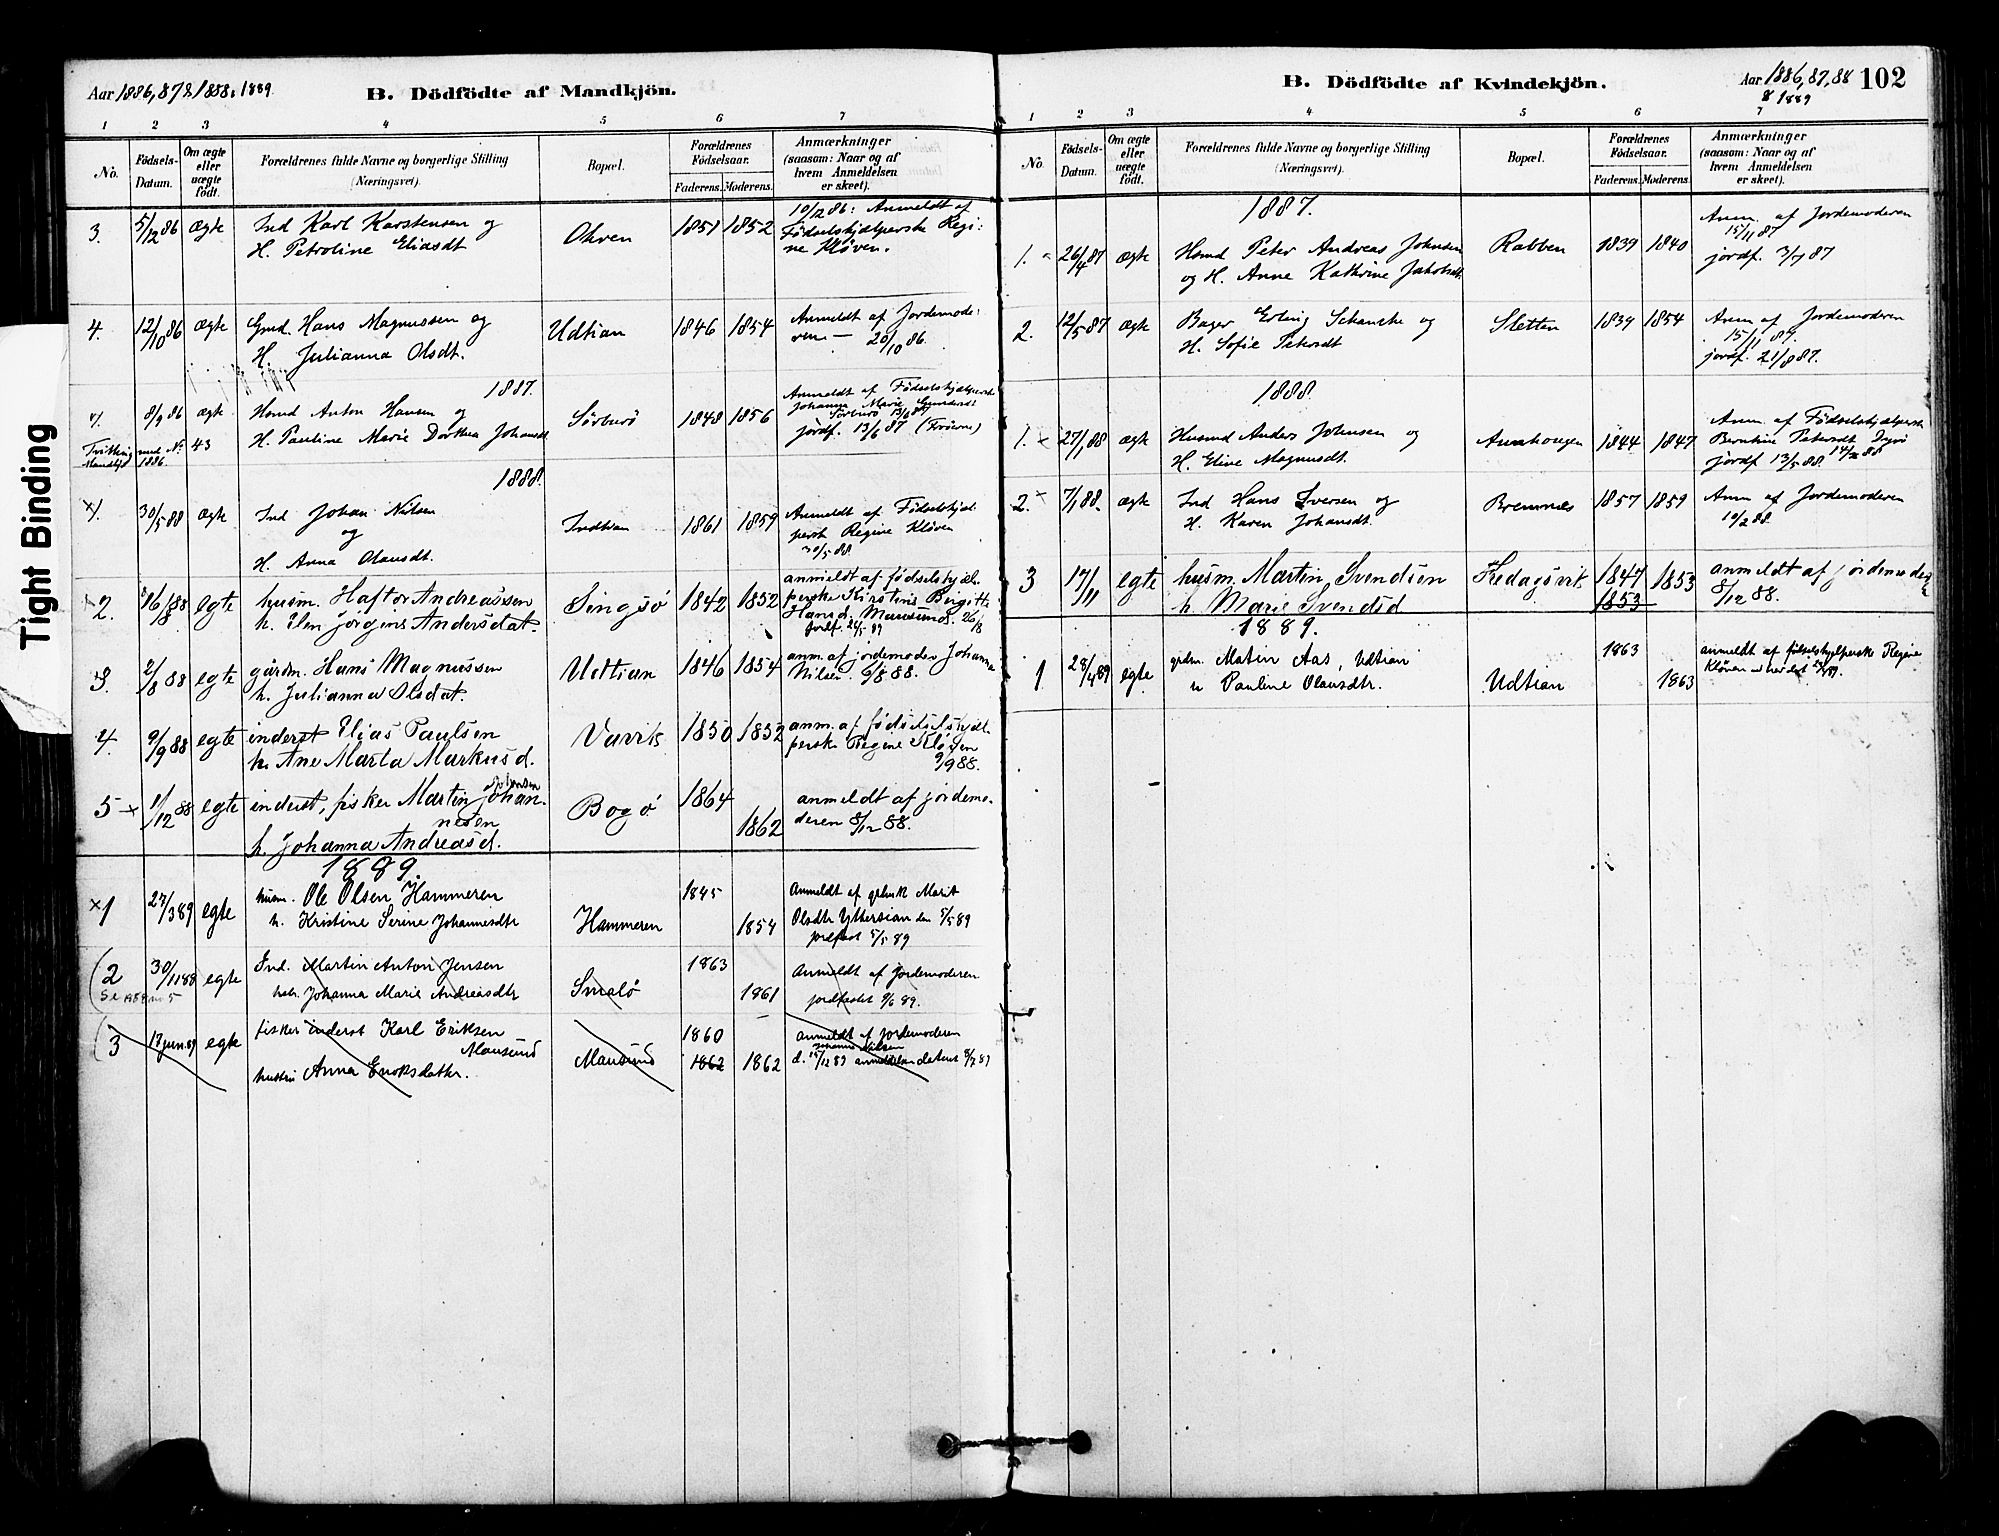 Tight Binding
Aar 1886, 87 & 1888 & 1889
B. Dödfödte af Mandkjön.
1 2 3 4 5 6 7
No. Födsels-Datum. Om ægte eller uægte födt. Forældrenes fulde Navne og borgerlige Stilling (Næringsvei). Bopæl. Forældrenes Födselsaar. Faderens. Moderens. Anmærkninger (saasom: Naar og af hvem Anmeldelsen er skeet).
3. 5/12 86 Ægte Ind Karl Karstensen og 1851 1852 10/12 86: Anmeldt af
H. Petroline Eliasdt Födselshjælperske Regi:
ne Klöven.
4. 12/10 86 Ægte Gmd. Hans Magnussen og Udtian 1846 1854 Anmeldt af Jordemode:
H. Julianna Olsdt. ren — 20/10 86.
1887.
1. 8/9 86 ægte Hsmd Anton Hansen og Sörburö 1848 1856 Anmeldt af Födselshjælperske
Johanna Marie Gundersdt
Sörburö 13/6 87
H. Pauline Marie Dorthea Johansdt jordf. 13/6 87
Tvilling med No 43
1886.
1888.
x1. 30/5 88 ægte Ind Johan Nilsen Indtian 1861 1859 Anmeldt af Födselshjæl
og perske Regine Klöven
H. Anna Olausdt. 30/5 88.
x2. 16/8 88 egte husm. Haftor Andreassen Singsö 1842 1852 anmeldt af födselshjæl-
perske Kirstine Birgitte
h. Elen Jörgine Andersdat. Hansd. Mausund. 26/8
jordf. 24/5 89
3. 2/8 88 egte gårdm. Hans Magnussen Udtian 1846 1854 anm. af jordemoder Johanna
h. Julianna Olsdat. Nilsen 6/8 88.
4. 9/9 88 egte inderst Elias Paulsen Vavik 1850 1852 anm. af födselshjæl-
h. Ane Marta Markusd. perske Regine Klöven
9/9 88.
5 x 1/12 88 egte inderst, fisker Martin Johan- Bogö 1864 1862 anmeldt af jordemo-
nesen deren 8/12 88.
h. Johanna Andreasd.
1889.
x1 27/3 89 egte husm. Ole Olsen Hammeren Hammeren 1845 1854 Anmeldt af Marit
h. Kristine Serine Johannesdtr Olsdtr Yttersian den 5/5 89
jordfæst 5/5 89
(2 30/11 88 egte Ind. Martin Anton Jensen Smalö 1863 1861 Anmeldt af Jordemoderen
Se 1888 no 5 Johanna Marie Andreasdtr jordfæstet 9/6 89.
(3 17 jun. 89 egte fisker inderst Karl Eriksen Mausund 1860 1862 1862 anmeldt af Jordemoderen
Mausund Johanna Nilsen
hustru Anna Enoksdatter. d. 15/12 89
B. Dödfödte af Kvindekjön.
Aar 1886, 87, 88 & 1889
102
1 2 3 4 5 6 7
No. Födsels-Datum. Om ægte eller uægte födt. Forældrenes fulde Navne og borgerlige Stilling (Næringsvei). Bopæl. Forældrenes Födselsaar. Faderens. Moderens. Anmærkninger (saasom: Naar og af hvem Anmeldelsen er skeet).
1887.
1. 26/4 87 ægte Hsmd Peter Andreas Johnsen Rabben 1839 1840 Anm. af Jordemoderen
15/11 87
og H. Anne Kathrine Jakobsdt. jordf. 3/7 87
2. 12/5 87 ægte Bager Erling Schanche og Sletten 1839 1854 Anm. af Jordemoderen
15/11 87.
H. Sofie Petersdt jordf. 21/8 87.
1888.
1. x 27/1 88 ægte Husmd Anders Johnsen og 1844 1847 Anm. af Födselshjælperske
Berntine Petersdt 14/2 88
H. Eline Magnusdt. jordf 13/5 88.
2. x 7/1 88. ægte Ind Hans Iversen og Bremnæs 1857 1859 Anm af Jordemoderen
H. Karen Johansdt. 10/2 88.
3 17/11 egte husm. Martin Svendsen Fredagsvik 1847 1853 anmeldt af jordemoder
h. Marie Svendsd 1853 8/12 88.
1889.
1 28/4 89 egte Matin Aas, Udtian Udtian 1863 1863 anmeldt af födselshjelperske Regine
Pauline Olausdtr. Klöven